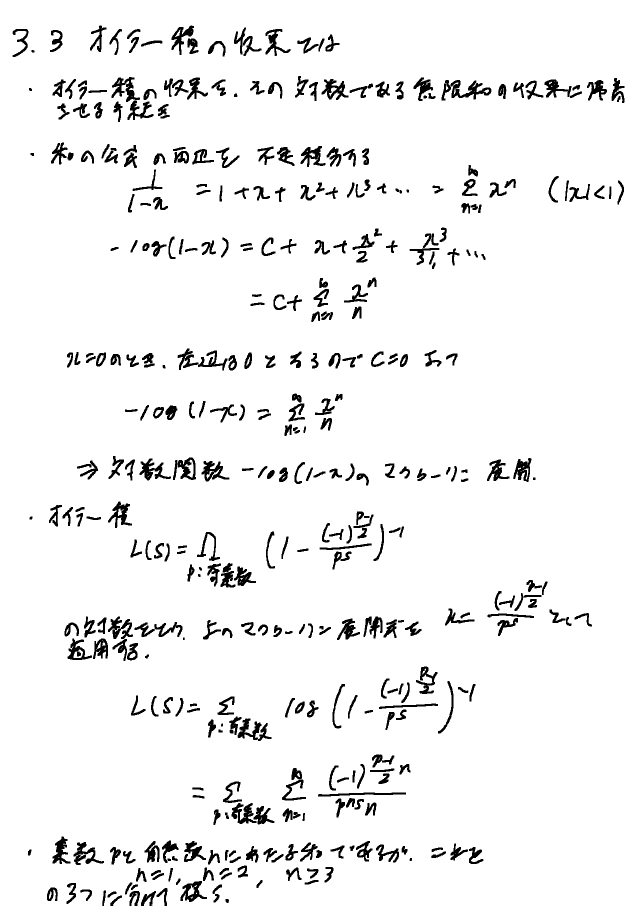 3.3 オイラー積の収束とは
・オイラー積の収束を、その対数である無限和の収束に帰着
させる手続き
・和の公式の両辺を 不定積分する
1/(1-x) = 1+x+x²+x³+… = Σ_{n=1}^{∞} xⁿ (|x|<1)
-log(1-x) = C + x + x²/2 + x³/3 + …
= C + Σ_{n=1}^{∞} xⁿ/n
x=0のとき、左辺は0となるのでC=0 よって
-log(1-x) = Σ_{n=1}^{∞} xⁿ/n
⇒ 対数関数 -log(1-x)のマクローリン展開.
・オイラー積
L(s) = Π_{p:奇素数} (1 - (-1)^{(p-1)/2}/p^s)^{-1}
の対数をとり、上のマクローリン展開式を x = (-1)^{(p-1)/2}/p^s として
適用する.
L(s) = Σ_{p:奇素数} log (1 - (-1)^{(p-1)/2}/p^s)^{-1}
= Σ_{p:奇素数} Σ_{n=1}^{∞} (-1)^{(p-1)/2 n}/(p^{ns} n)
・素数pと自然数nにわたる和であるが、これを
n=1, n=2, n≥3
の3つに分けて扱う.